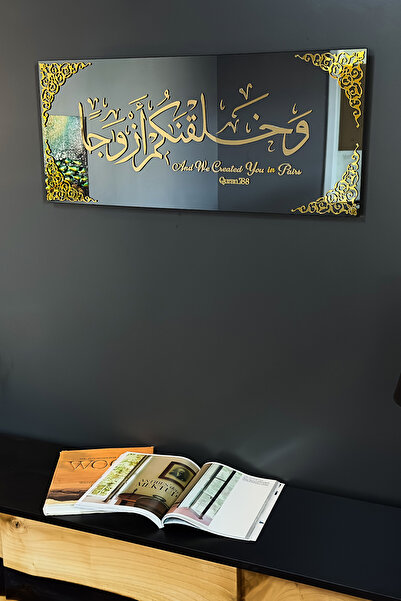 وَخَلَقْنَكُمْ أَزْوَجًا
And We Created You in Pairs
Quran 78:8
WOO
MEKTUP